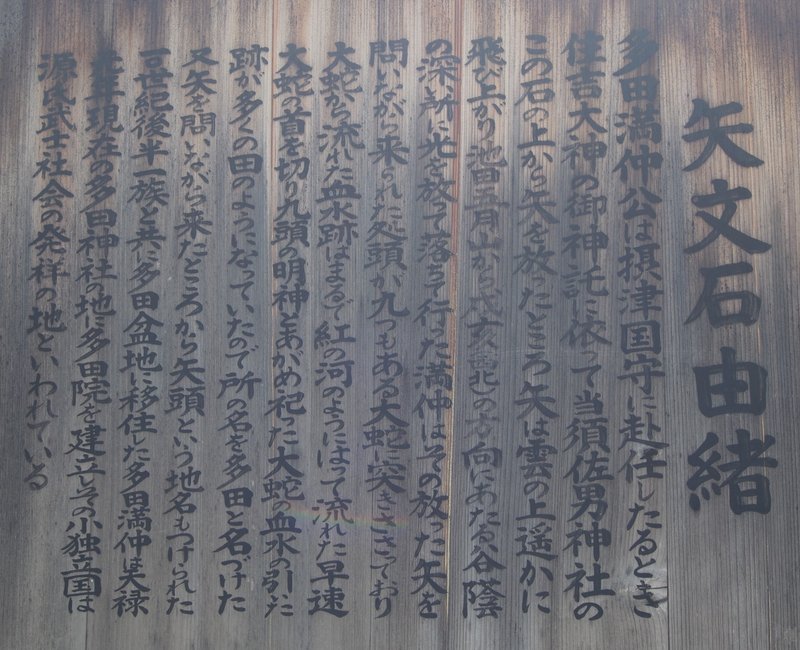 矢文石由緒
多田満仲公は摂津国守に赴任したるとき
住吉大神の御神託に依って当須佐男神社の
この石の上から矢を放ったところ矢は雲の上遥かに
飛び上がり池田五月山から戌亥北の方向にあたる谷蔭
の深い所に光を放って落ちて行った満仲はその放った矢を
問いながら来られた処頭が九つもある大蛇に突きささっており
大蛇から流れた血水跡はまるで紅の河のようにはって流れた早速
大蛇の首を切り九頭の明神とあがめ祀った大蛇の血水の引いた
跡が多くの田のようになっていたので所の名を多田と名づけた
又矢を問いながら来たところから矢頭という地名もつけられた
世紀後半一族と共に多田盆地に移住した多田満仲は天禄
年現在の多田神社の地に多田院を建立しその小独立国は
源氏武士社会の発祥の地といわれている